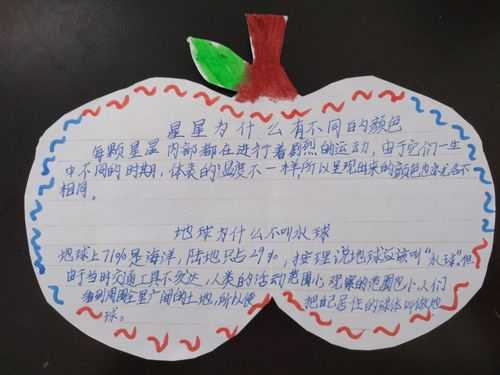 星星为什么有不同的颜色
每颗星星内部都在进行着剧烈的运动,由于它们一生
中不同的时期,体表的温度不一样所以呈现出来的颜色也各不
相同。
地球为什么不叫水球
地球上71%是海洋,陆地只占29%,按理说地球应该叫"水球"。但
由于当时交通工具不发达,人类的活动范围小观察的范围也小人们
看到周围全是广阔的土地,所以便 把自己居住的球体叫做地
球。